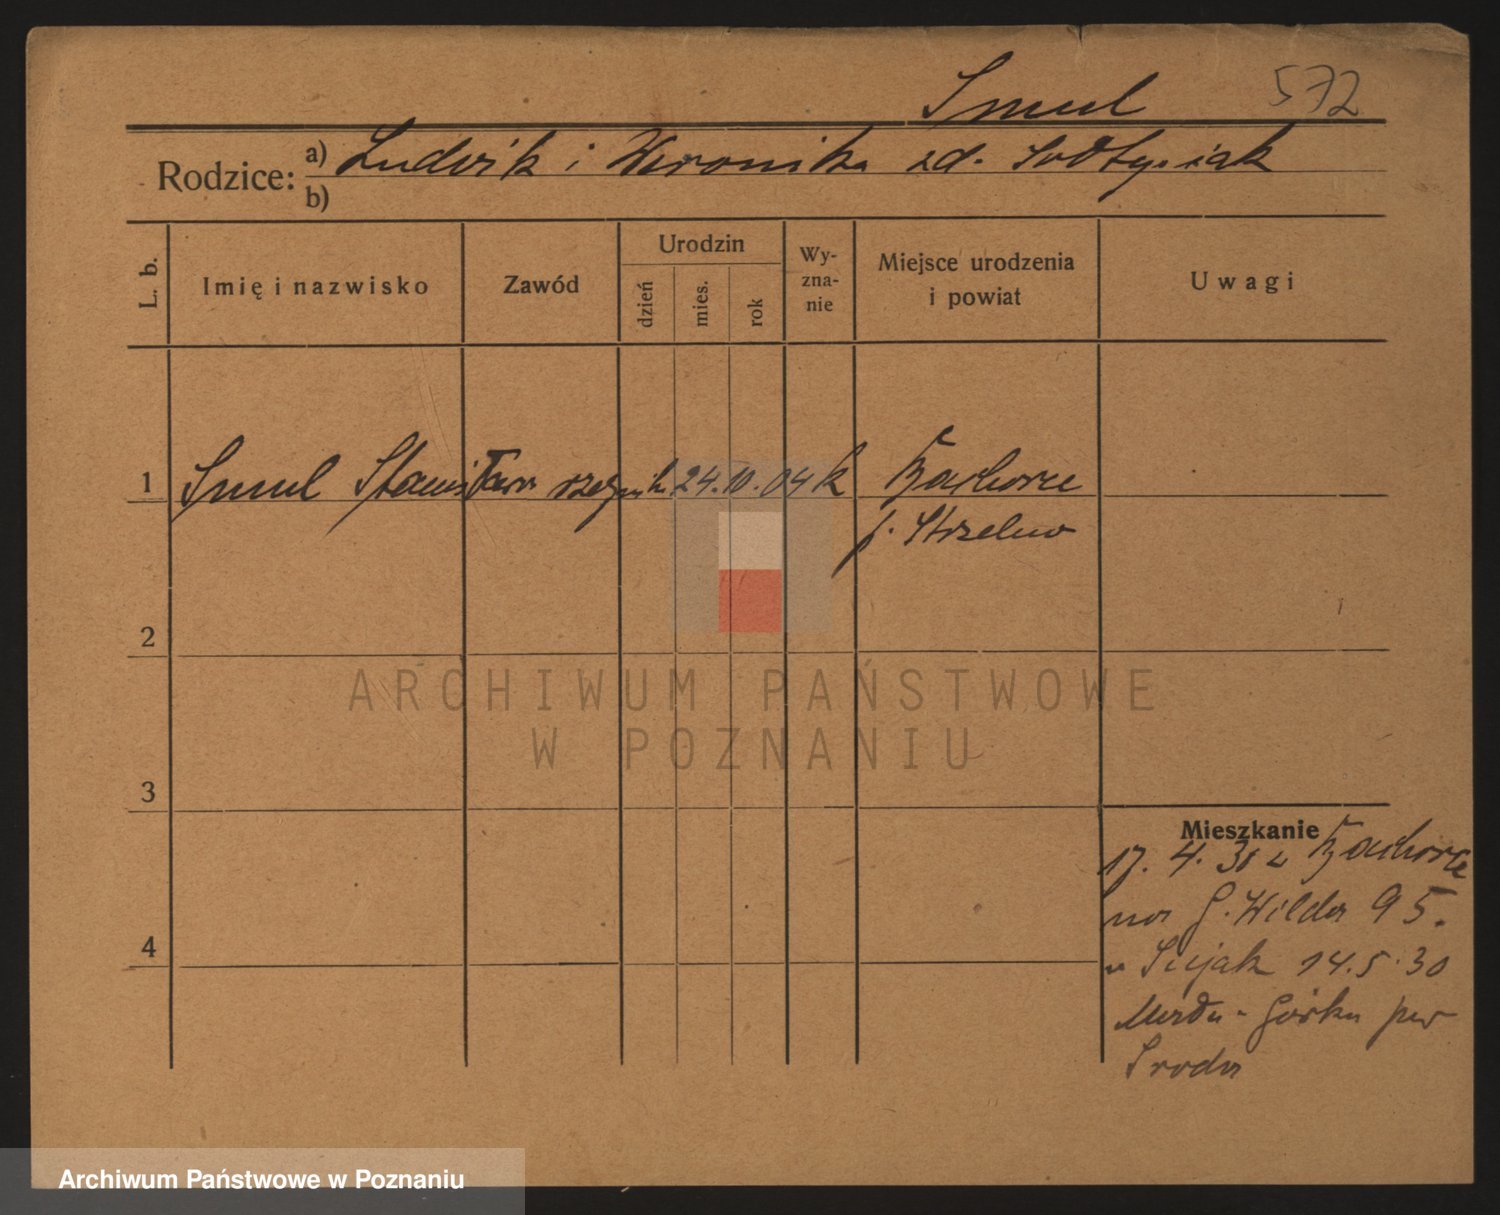 Smul 572
Rodzice: a) Ludwik i Weronika zd. Sołtysiak
b)
L. b. Imię i nazwisko Zawód Urodzin dzień mies. rok Wy-zna-nie Miejsce urodzenia i powiat Uwagi
1 Smul Stanisław rzeźnik 24. 10. 04 k Bachorce
p. Strzelno
2
ARCHIWUM PAŃSTWOWE
W POZNANIU
3
Mieszkanie
17. 4. 31 z Bachorce
na G. Wilda 95.
u Sujak 14.5.30
Górka pow
Środa
4
Archiwum Państwowe w Poznaniu